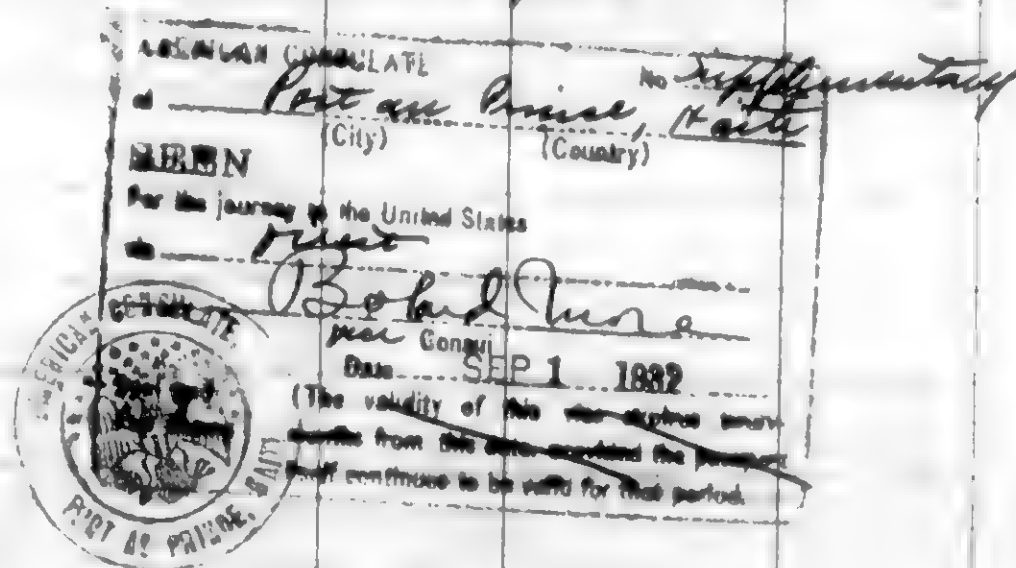 AMERICAN CONSULATE
No Supplementary
at Port au Prince, Haiti
(City) (Country)
SEEN
For the journey to the United States
via direct
Consul
Date SEP 1 1932
(The validity of this visa expires twelve
months from this date provided the passport
shall continue to be valid for that period.)
AMERICAN CONSULATE,
PORT AU PRINCE, HAITI